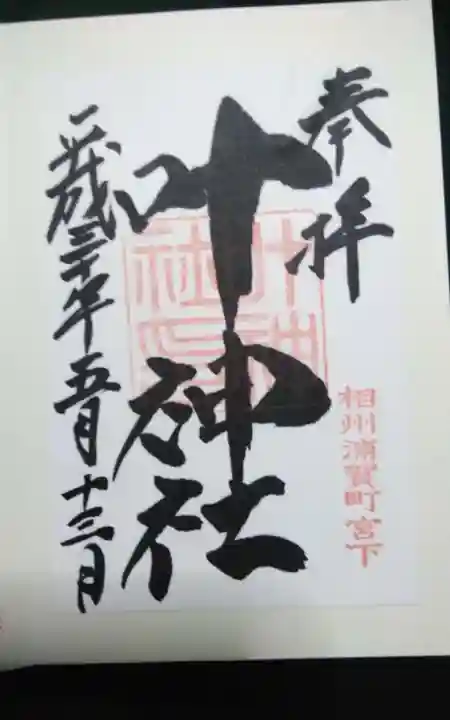 奉拝
相州浦賀町宮下
叶神社
叶神社印
平成三十年五月十三日